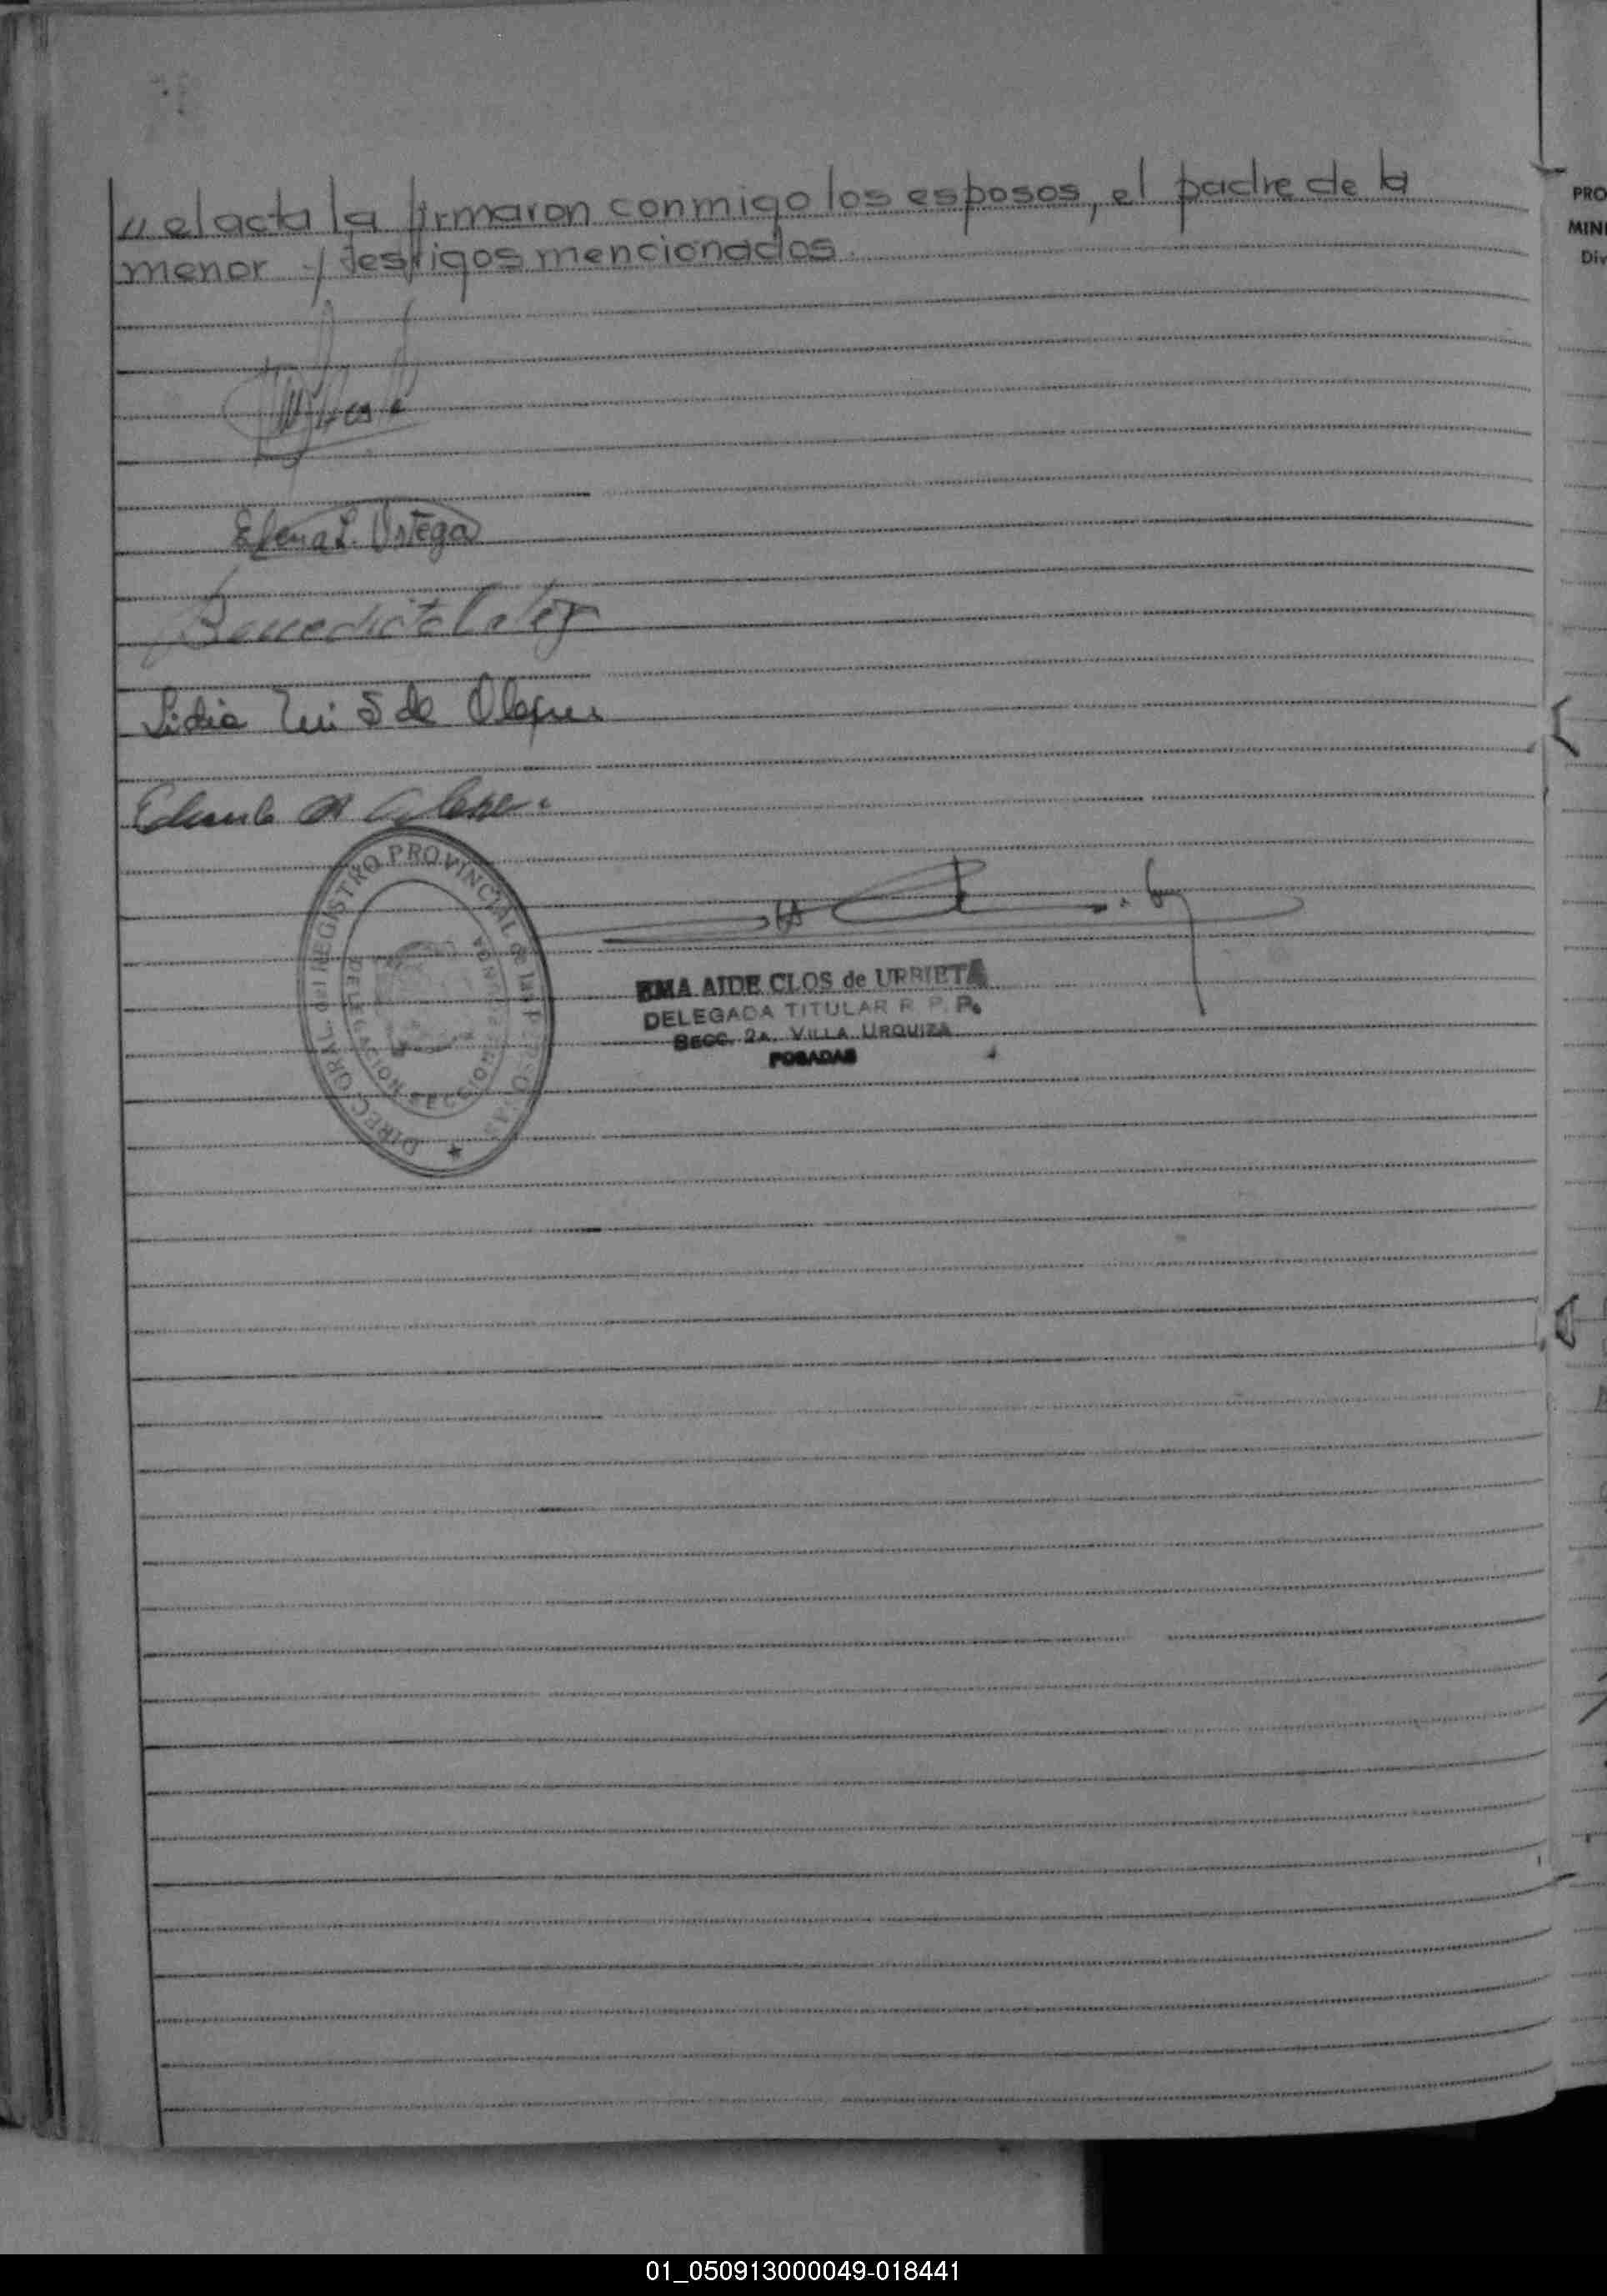 // el acta la firmaron conmigo los esposos, el padre de la
menor y testigos mencionados.
Elena L. Ortega
Benedicta
Lidia de
DIREC. GRAL. del REGISTRO PROVINCIAL de las
SECCION
EMA AIDE CLOS de URRIETA
DELEGADA TITULAR R. P. P.
SECC. 2A. VILLA URQUIZA
POSADAS
PRO
MINI
Div
01_050913000049-018441